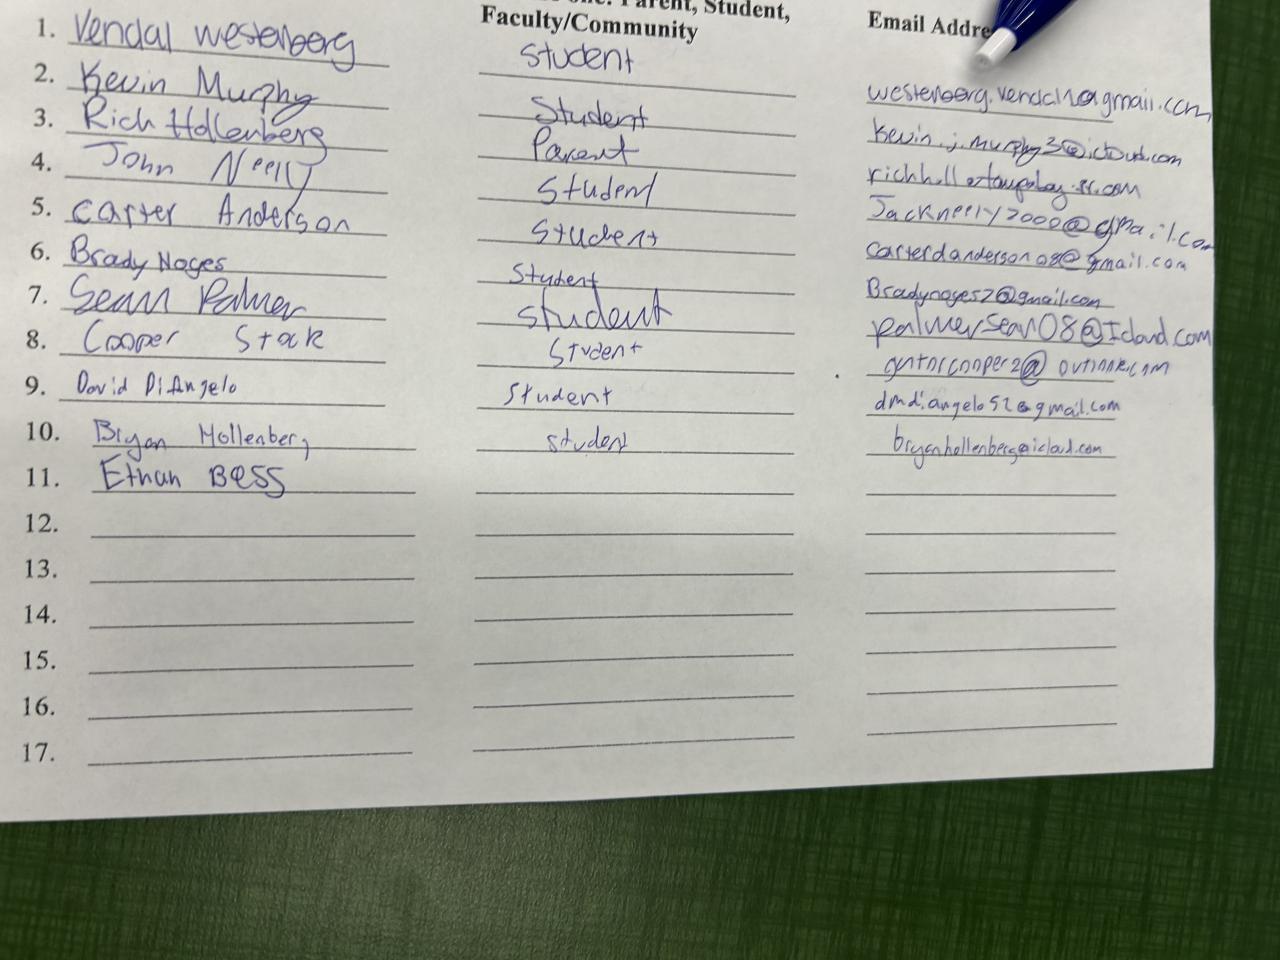 Parent, Student,
Faculty/Community
Email Addre
1. Vendal Westenberg student
2. Kevin Murphy Student westenberg.vendal1@gmail.com
3. Rich Hollenberg Parent kevin.j.murphy3@icloud.com
4. John Neely Student
5. Carter Anderson Student Jackneely2000@gmail.com
6. Brady Noyes Student carterdanderson08@gmail.com
7. Sean Palmer student Bradynoyes2@gmail.com
8. Cooper Stock Student palmersean08@Icloud.com
9. David DiAngelo Student
10. Bryan Hollenberg student dmdiangelo52@gmail.com
bryanhollenberg@icloud.com
11. Ethan Bess
12.
13.
14.
15.
16.
17.